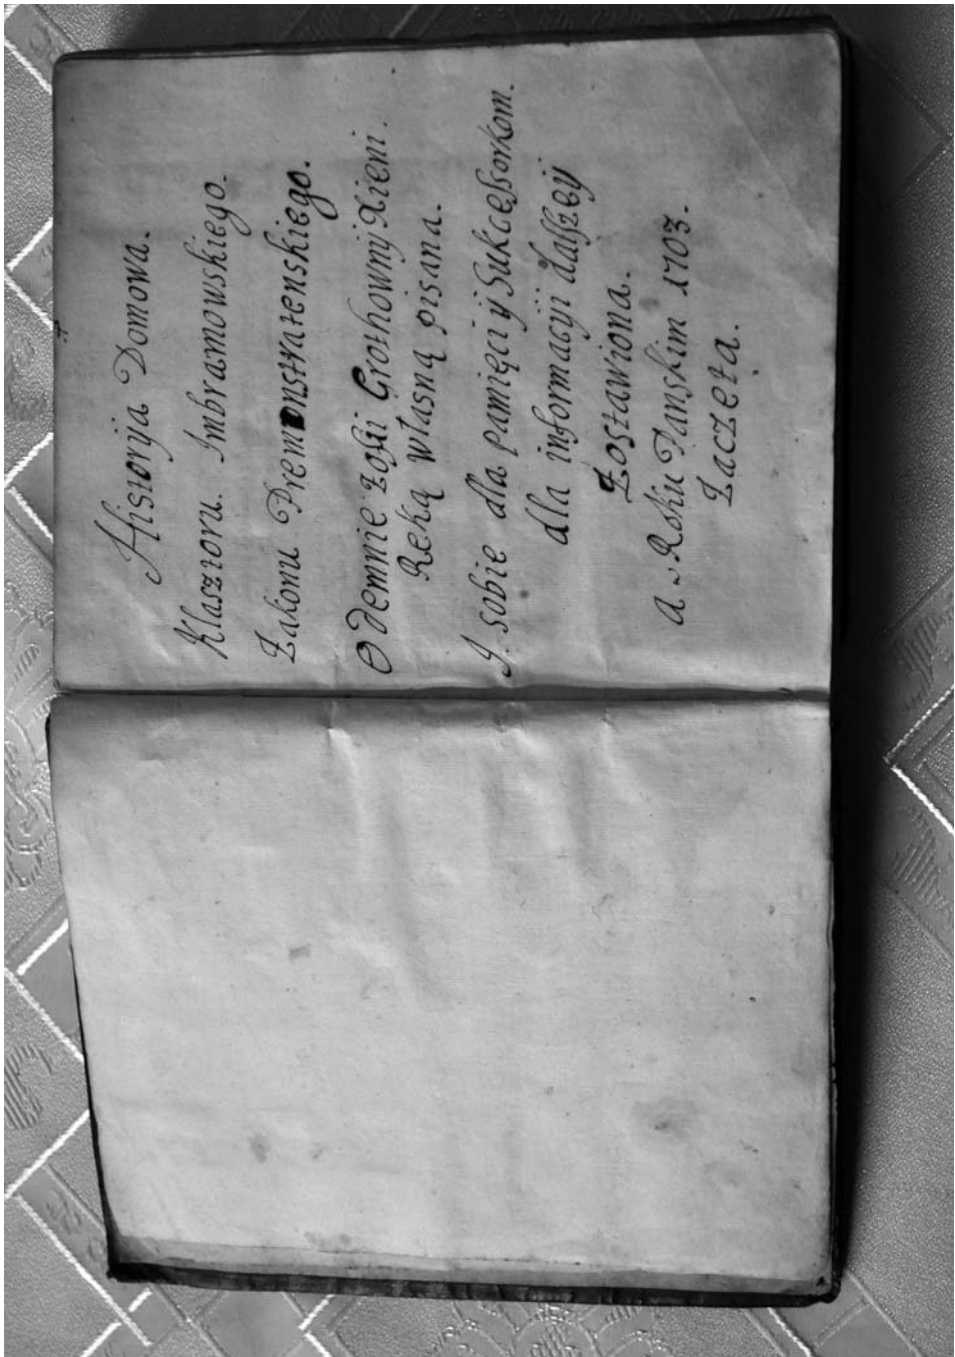 Historyja Domowa.
Klasztoru Imbramowskiego.
Zakonu Premonstratenskiego.
Odemnie Zofii Grothowny Xieni.
Ręką własną pisana.
I. sobie dla pamięci y Sukcessorkom.
dla informacyji dalszeij
Zostawiona.
a Roku Panskim 1703.
Zaczęta.